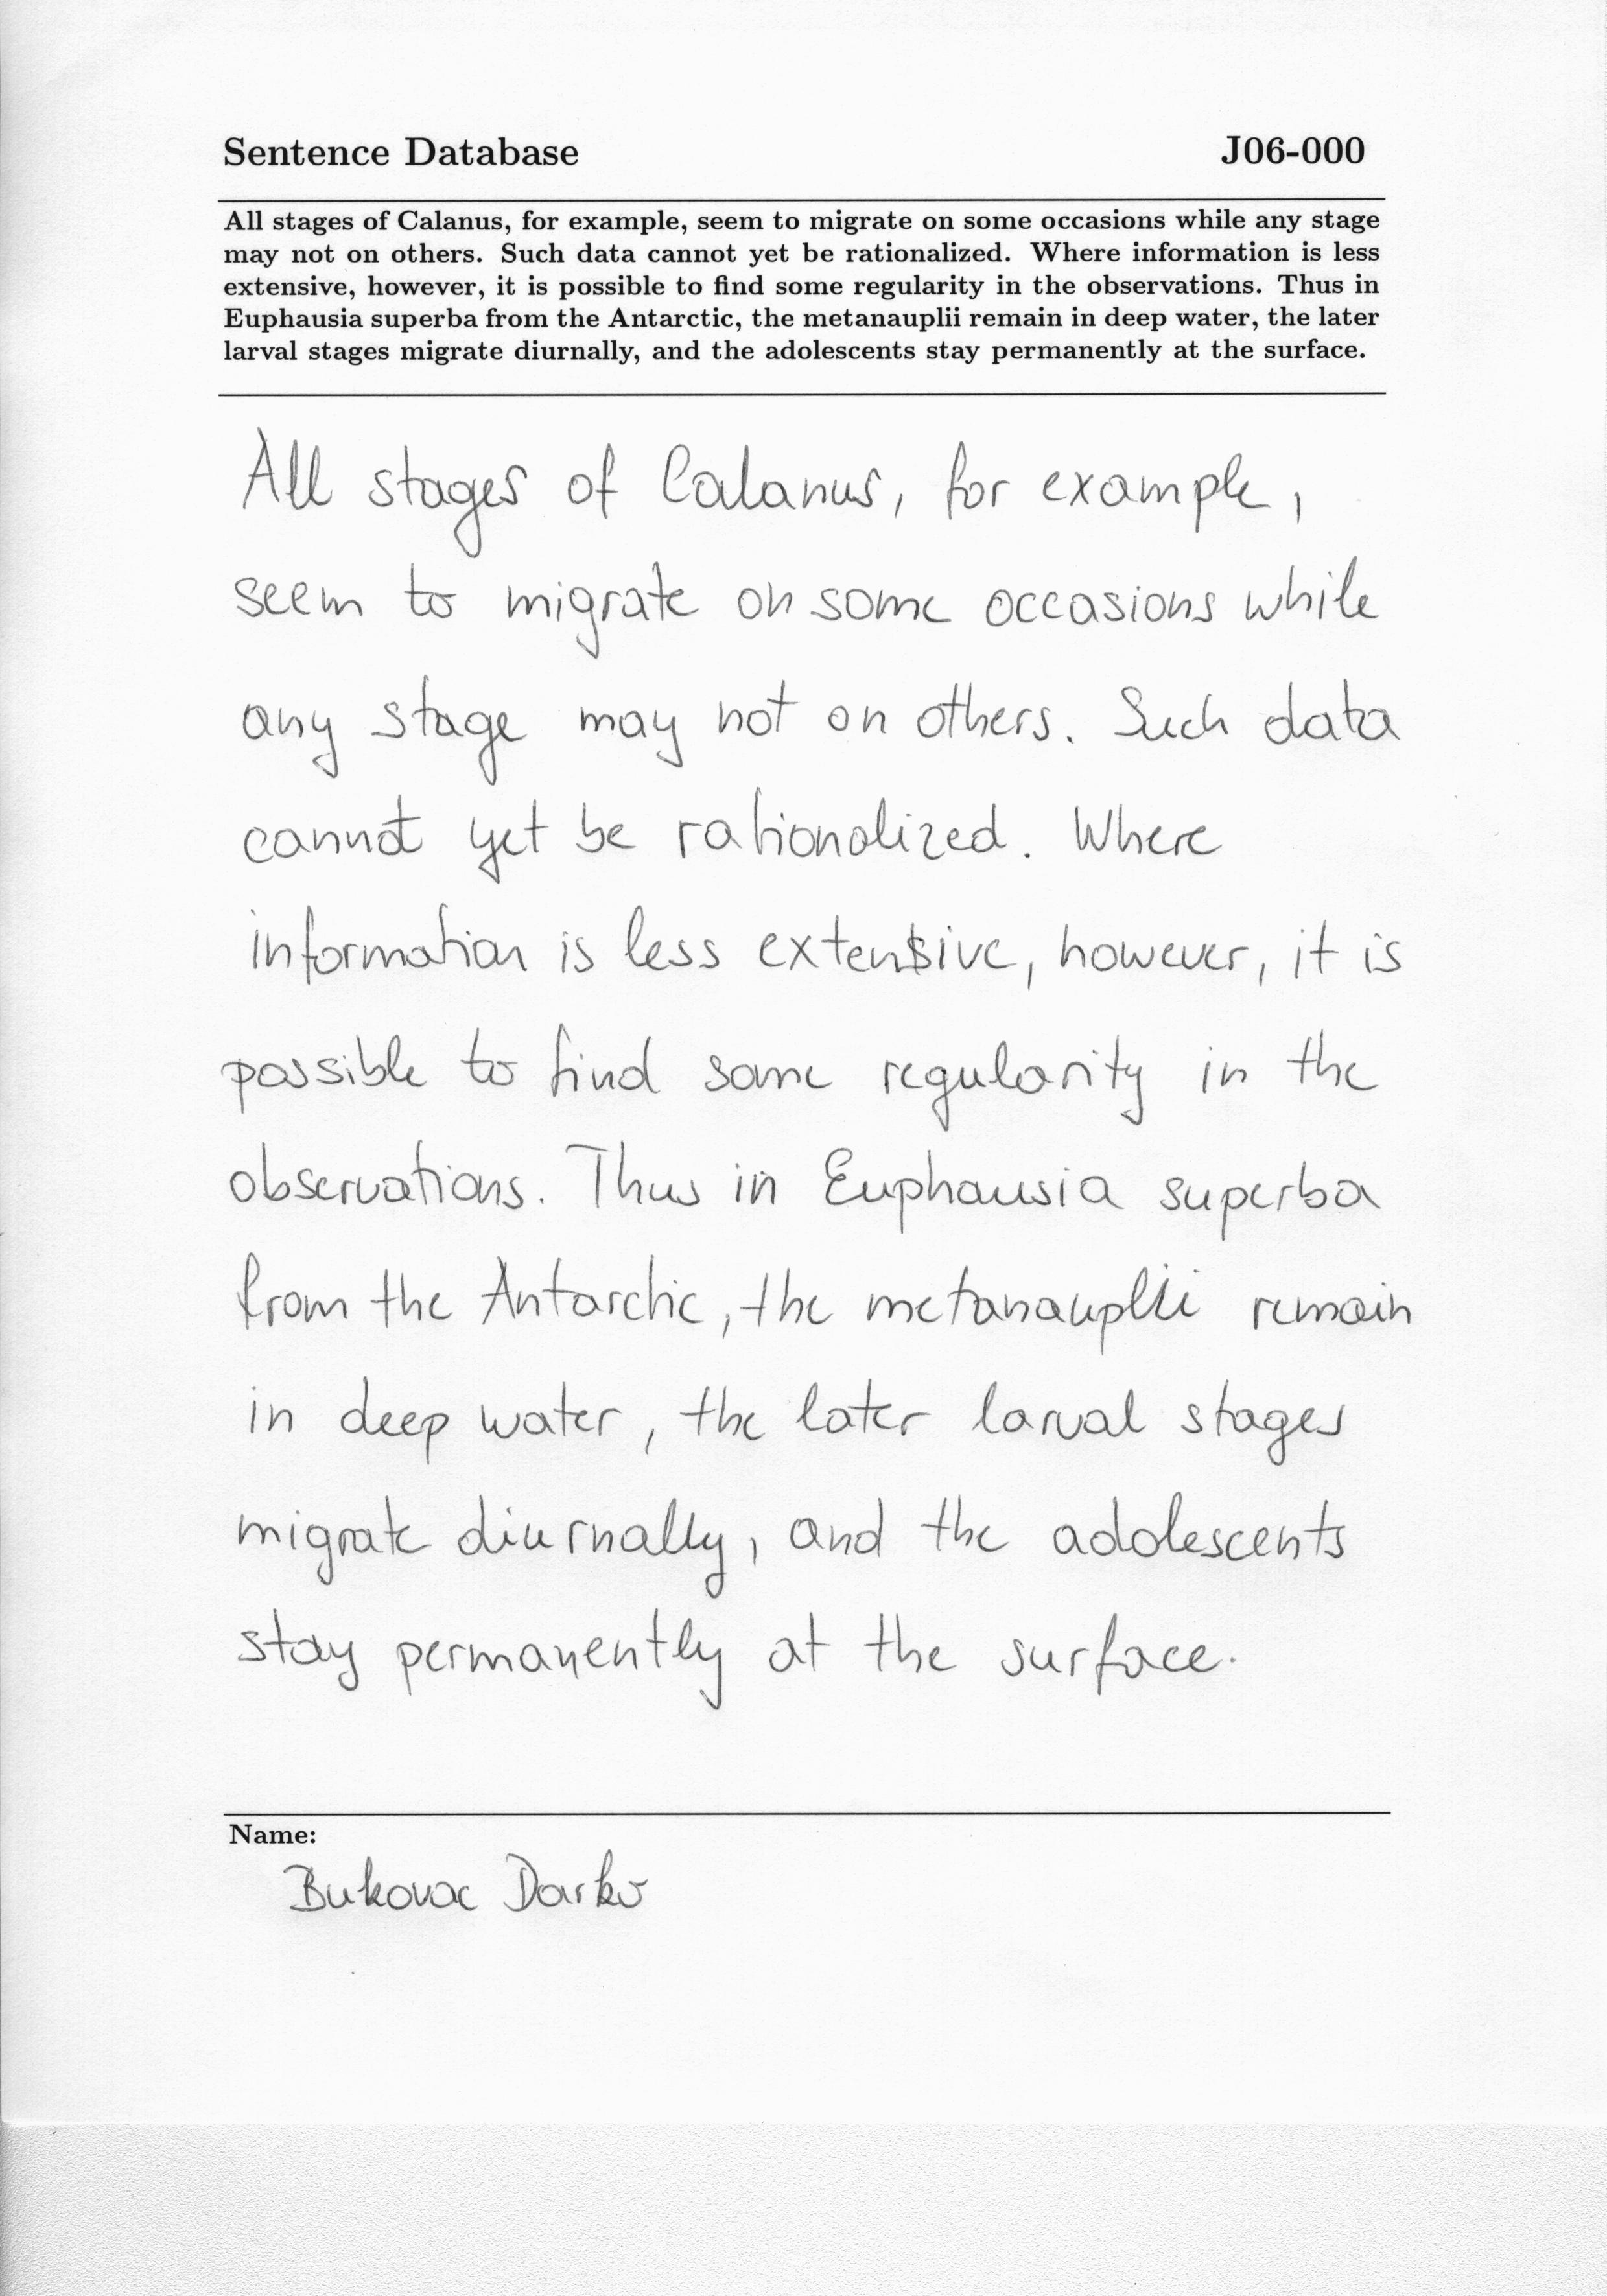 Sentence Database J06-000
All stages of Calanus, for example, seem to migrate on some occasions while any stage
may not on others. Such data cannot yet be rationalized. Where information is less
extensive, however, it is possible to find some regularity in the observations. Thus in
Euphausia superba from the Antarctic, the metanauplii remain in deep water, the later
larval stages migrate diurnally, and the adolescents stay permanently at the surface.
All stages of Calanus, for example,
seem to migrate on some occasions while
any stage may not on others. Such data
cannot yet be rationalized. Where
information is less extensive, however, it is
possible to find some regularity in the
observations. Thus in Euphausia superba
from the Antarctic, the metanauplii remain
in deep water, the later larval stages
migrate diurnally, and the adolescents
stay permanently at the surface.
Name:
Bukovac Darko